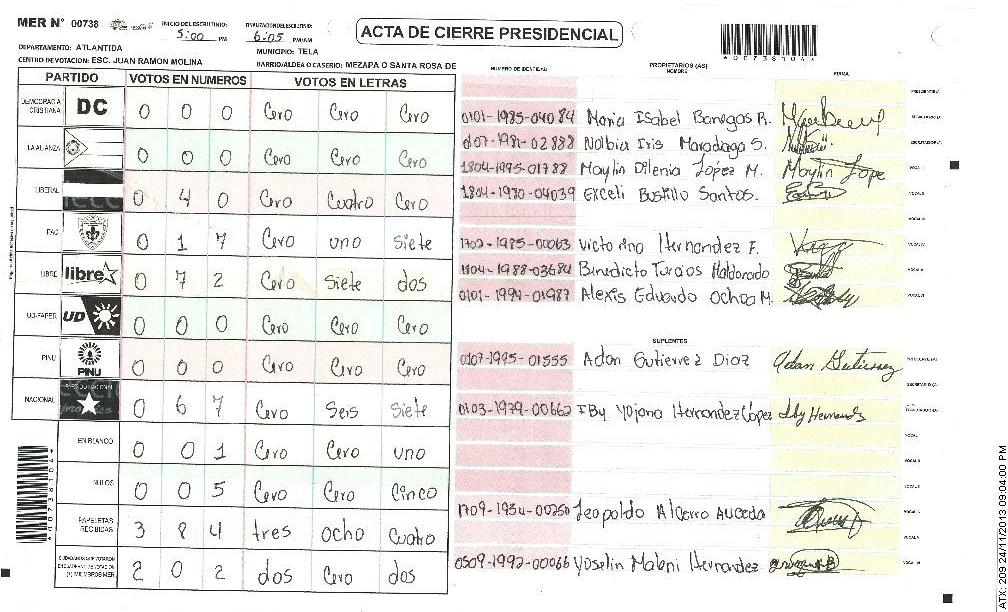 MER N° 00738
INICIO DEL ESCRUTINIO: 5:00 PM
FINALIZACION DEL ESCRUTINIO: 6:05 PM/AM
ACTA DE CIERRE PRESIDENCIAL
*00738104*
DEPARTAMENTO: ATLANTIDA
MUNICIPIO: TELA
CENTRO DE VOTACION: ESC. JUAN RAMON MOLINA
BARRIO/ALDEA O CASERIO: MEZAPA O SANTA ROSA DE
PARTIDO VOTOS EN NUMEROS VOTOS EN LETRAS
DEMOCRACIA CRISTIANA DC 0 0 0 Cero Cero Cero
LA ALIANZA 0 0 0 Cero Cero Cero
LIBERAL 0 4 0 Cero Cuatro Cero
PAC 0 1 7 Cero uno siete
LIBRE libre 0 7 2 Cero siete dos
UD-FAPER UD 0 0 0 Cero Cero Cero
PINU PINU 0 0 0 Cero Cero Cero
NACIONAL 0 6 7 Cero Seis siete
EN BLANCO 0 0 1 Cero Cero uno
NULOS 0 0 5 Cero Cero Cinco
PAPELETAS RECIBIDAS 3 8 4 tres ocho Cuatro
CIUDADANOS QUE VOTARON 2 0 2 dos Cero dos
(+) MIEMBROS MER
*00738104*
NUMERO DE IDENTIDAD PROPIETARIOS (AS) NOMBRE FIRMA
PRESIDENTE/A
0101-1985-04084 Maria Isabel Banegas R. SECRETARIO/A
0107-1981-02888 Nolbia Iris Maradaga S. ESCRUTADOR/A
1804-1995-01788 Maylin Dilenia López M. Maylin Lope VOCAL I
1804-1980-04039 Exceli Bustillo Santos. VOCAL II
VOCAL III
1702-1985-00063 Victorina Hernandez F. VOCAL IV
1804-1988-03684 Benedicto Turcios Maldonado VOCAL V
0101-1994-01987 Alexis Eduardo Ochoa M. VOCAL VI
SUPLENTES
0107-1995-01555 Adan Gutierrez Diaz Adan Gutierrez PRESIDENTE/A
SECRETARIO/A
0103-1979-00662 Iby Yojana Hernandez López Iby Hernandz ESCRUTADOR/A
VOCAL I
VOCAL II
VOCAL III
1709-1954-00250 Leopoldo Alcerro Auceda VOCAL IV
VOCAL V
0509-1992-00066 Yoselin Maleni Hernandez VOCAL VI
ATX: 209 24/11/2013 09:04:00 PM